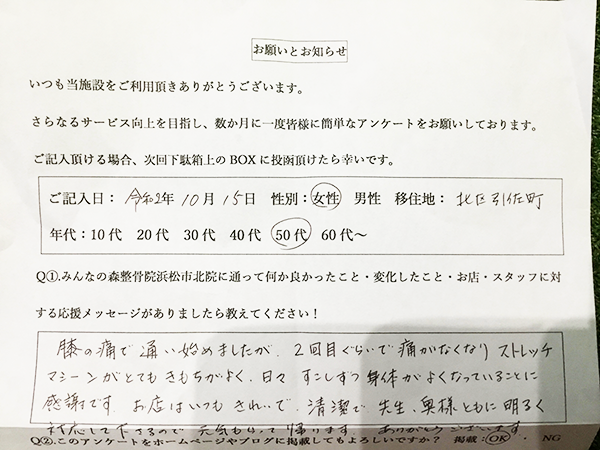 お願いとお知らせ
いつも当施設をご利用頂きありがとうございます。
さらなるサービス向上を目指し、数か月に一度皆様に簡単なアンケートをお願いしております。
ご記入頂ける場合、次回下駄箱上の BOX に投函頂けたら幸いです。
ご記入日：令和2年 10月 15日 性別：女性 男性 移住地：北区引佐町
年代：10代 20代 30代 40代 50代 60代～
Q①.みんなの森整骨院浜松市北院に通って何か良かったこと・変化したこと・お店・スタッフに対
する応援メッセージがありましたら教えてください！
膝の痛で通い始めましたが、2回目ぐらいで痛がなくなり ストレッチ
マシーンがとてもきもちがよく、日々 すこしずつ 身体が よくなっていることに
感謝です。お店はいつも きれいで、清潔で 先生、奥様ともに明るく
対応して下さるので 元気もらって 帰ります。ありがとうございます
Q②.このアンケートをホームページやブログに掲載してもよろしいですか？ 掲載：OK NG